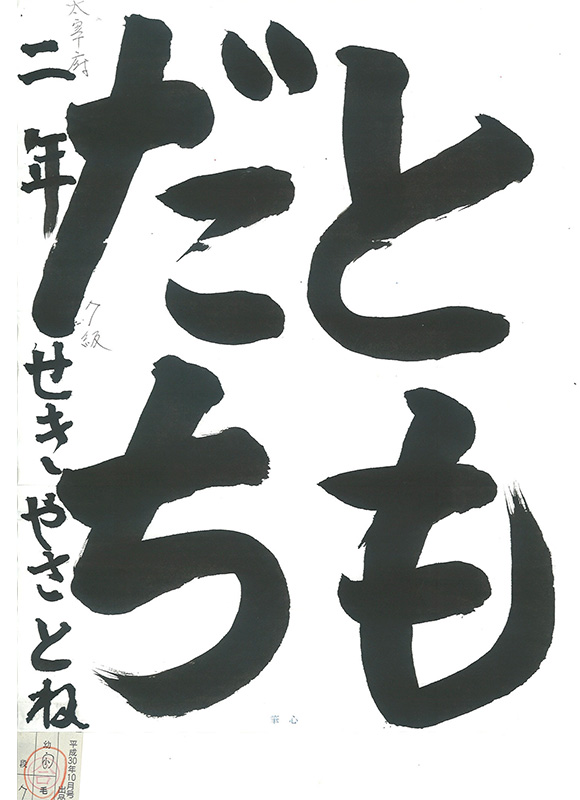 とも
だち
二年せきやさとね
太宰府
7級
筆心
平成30年10月号
幼小
毛
段